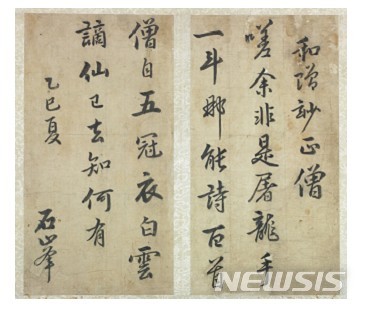 和贈妙正僧
嗟余非是屠龍手
一斗那能詩百首
僧自五冠衣白雲
謫仙已去知何有
乙巳夏
石峯
NEWSIS